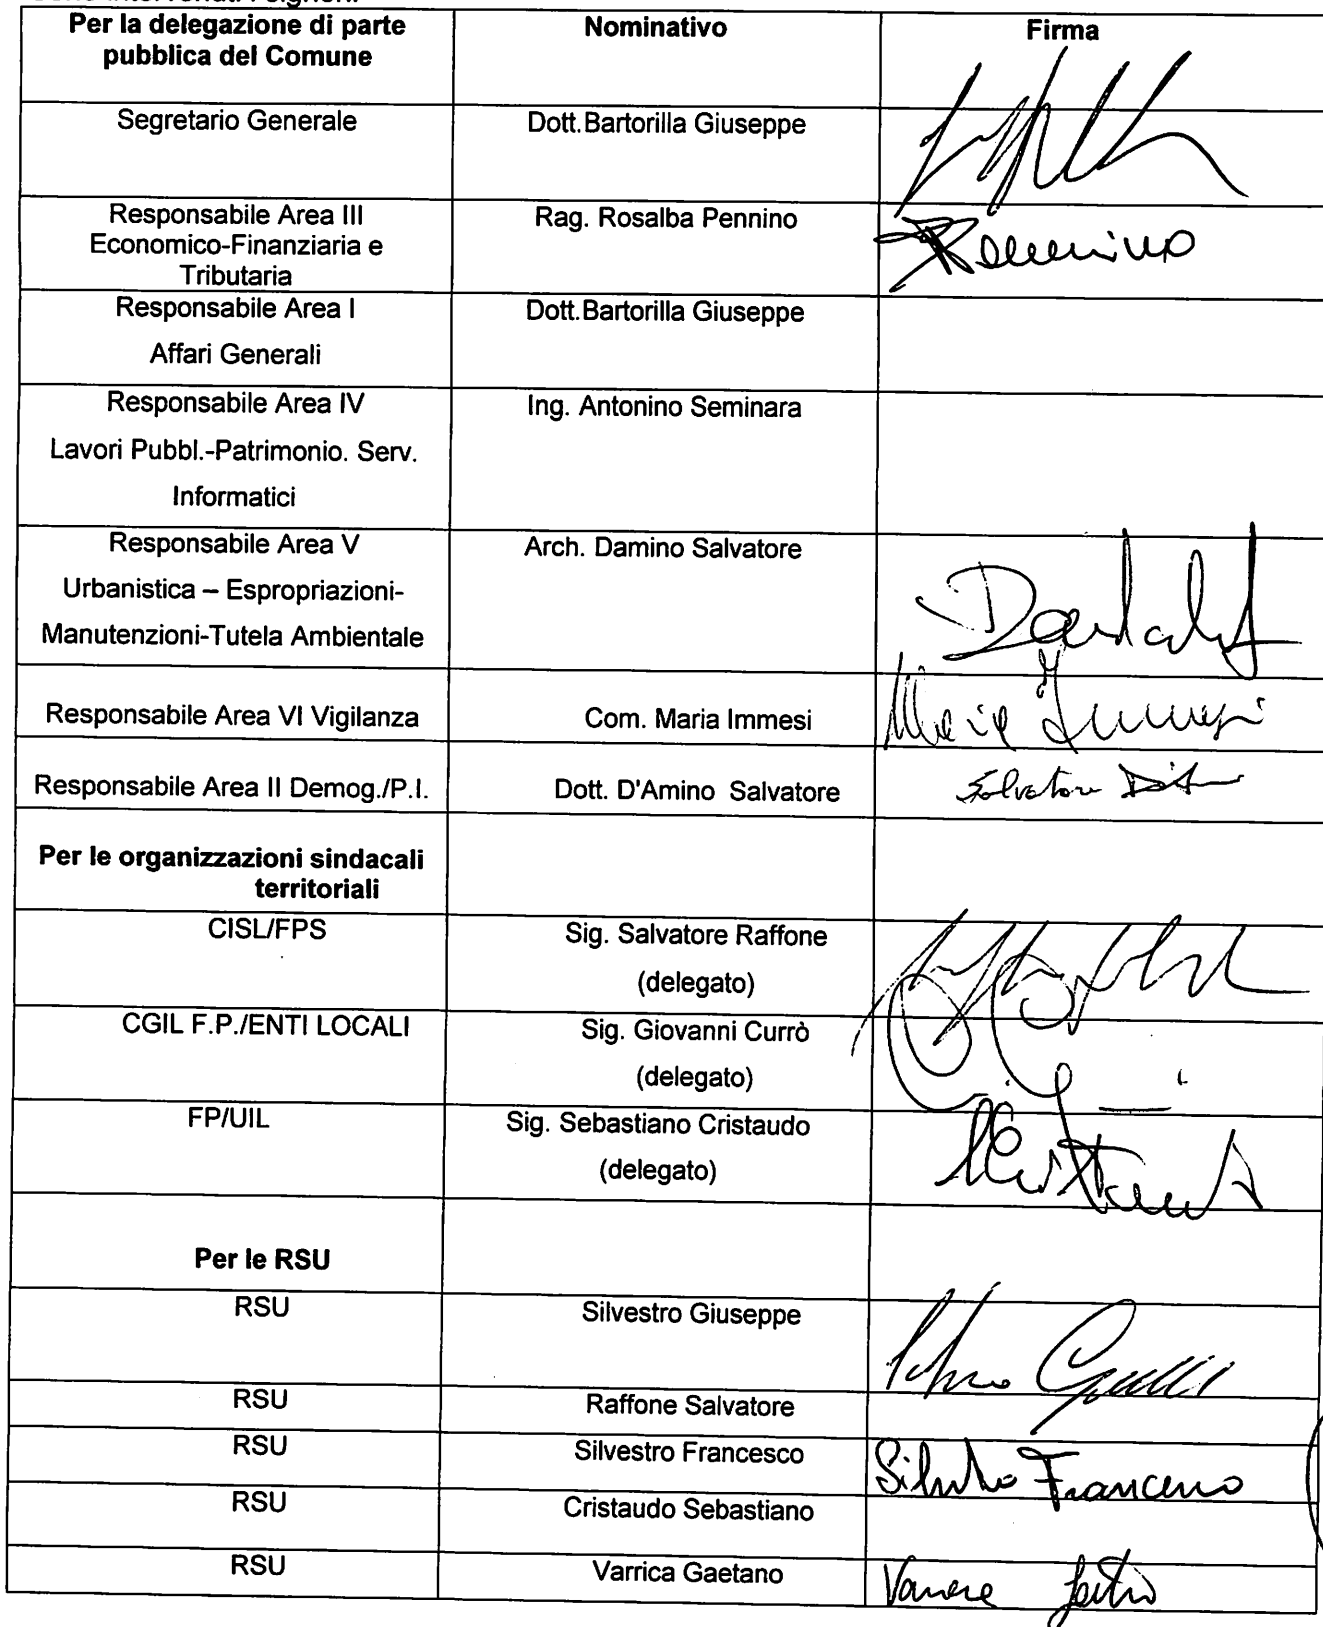 Per la delegazione di parte
pubblica del Comune
Nominativo
Firma
Segretario Generale
Dott.Bartorilla Giuseppe
Responsabile Area III
Economico-Finanziaria e
Tributaria
Rag. Rosalba Pennino
Responsabile Area I
Affari Generali
Dott.Bartorilla Giuseppe
Responsabile Area IV
Lavori Pubbl.-Patrimonio. Serv.
Informatici
Ing. Antonino Seminara
Responsabile Area V
Urbanistica – Espropriazioni-
Manutenzioni-Tutela Ambientale
Arch. Damino Salvatore
Responsabile Area VI Vigilanza
Com. Maria Immesi
Maria Immesi
Responsabile Area II Demog./P.I.
Dott. D'Amino Salvatore
Salvatore
Per le organizzazioni sindacali
territoriali
CISL/FPS
Sig. Salvatore Raffone
(delegato)
CGIL F.P./ENTI LOCALI
Sig. Giovanni Currò
(delegato)
FP/UIL
Sig. Sebastiano Cristaudo
(delegato)
Per le RSU
RSU
Silvestro Giuseppe
RSU
Raffone Salvatore
RSU
Silvestro Francesco
Silvestro Francesco
RSU
Cristaudo Sebastiano
RSU
Varrica Gaetano